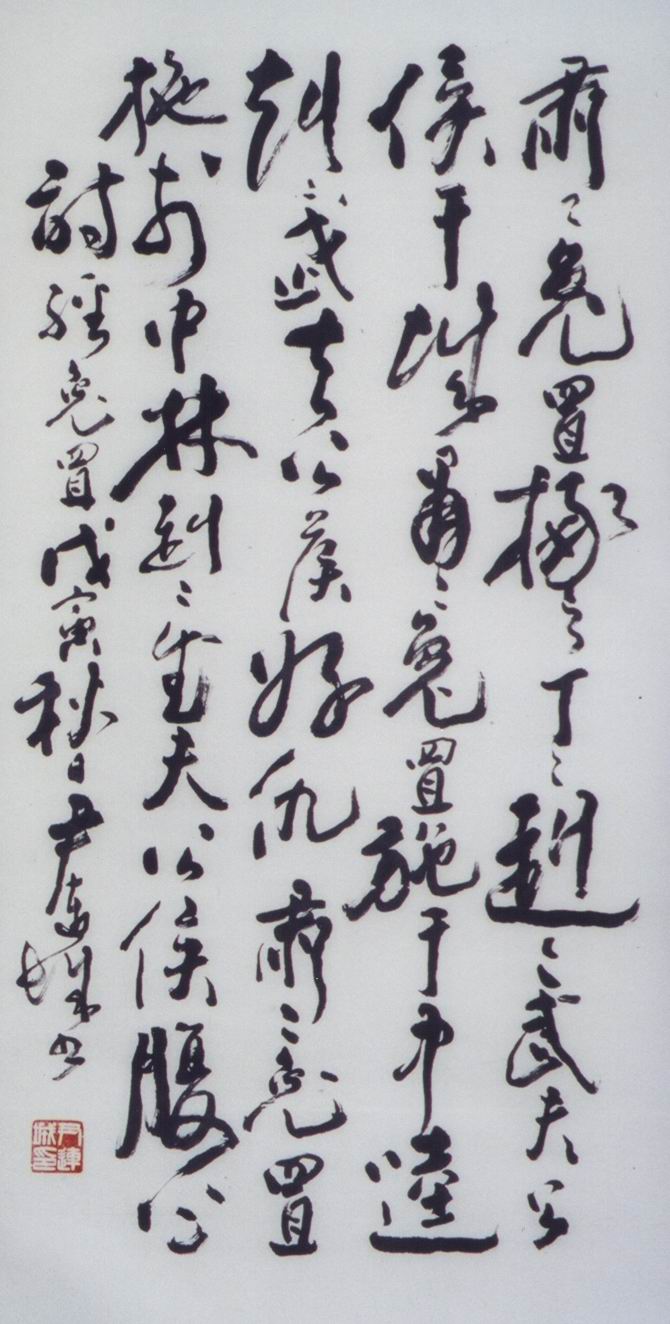 肃〻兔罝椓之丁〻赳〻武夫公
侯干城肃〻兔罝施于中逵
赳〻武夫公侯好仇肃〻兔罝
施于中林赳〻武夫公侯腹心
詩經兔罝戊寅秋日尹連城书
尹連城印